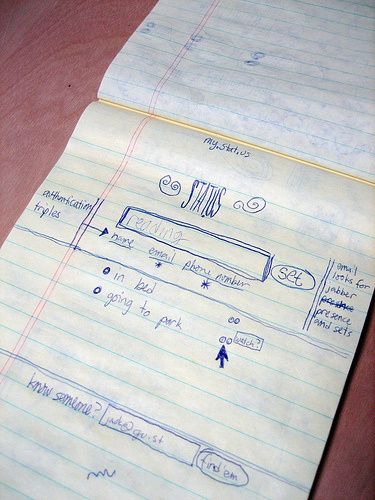 my.stat.us
STATUS
authentication
triples
reading
name email phone number
set
in bed
going to park
watch?
gmail
looks for
jabber
presence
and sets
know someone?
find em